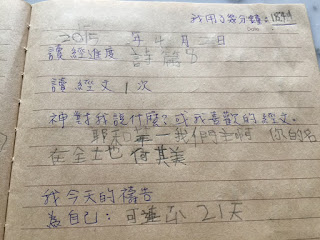 我用了幾分鐘:
2015 年 4 月 二 日
讀經進度 詩篇8
讀經文 1 次
神對我說什麼?或我喜歡的經文。
耶和華一我們主啊 你的名
在全土也 何其美
我今天的禱告
為自己: 可連 21天